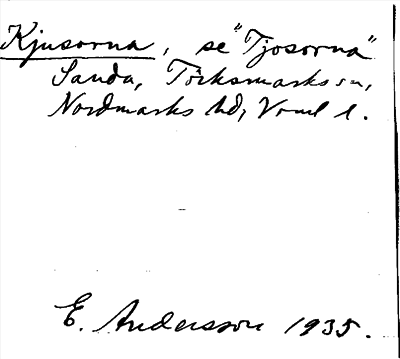 Kjusorna, se "Tjosorna"
Sanda, Töcksmarks sn,
Nordmarks hd, Vrml l.
E. Andersson 1935.